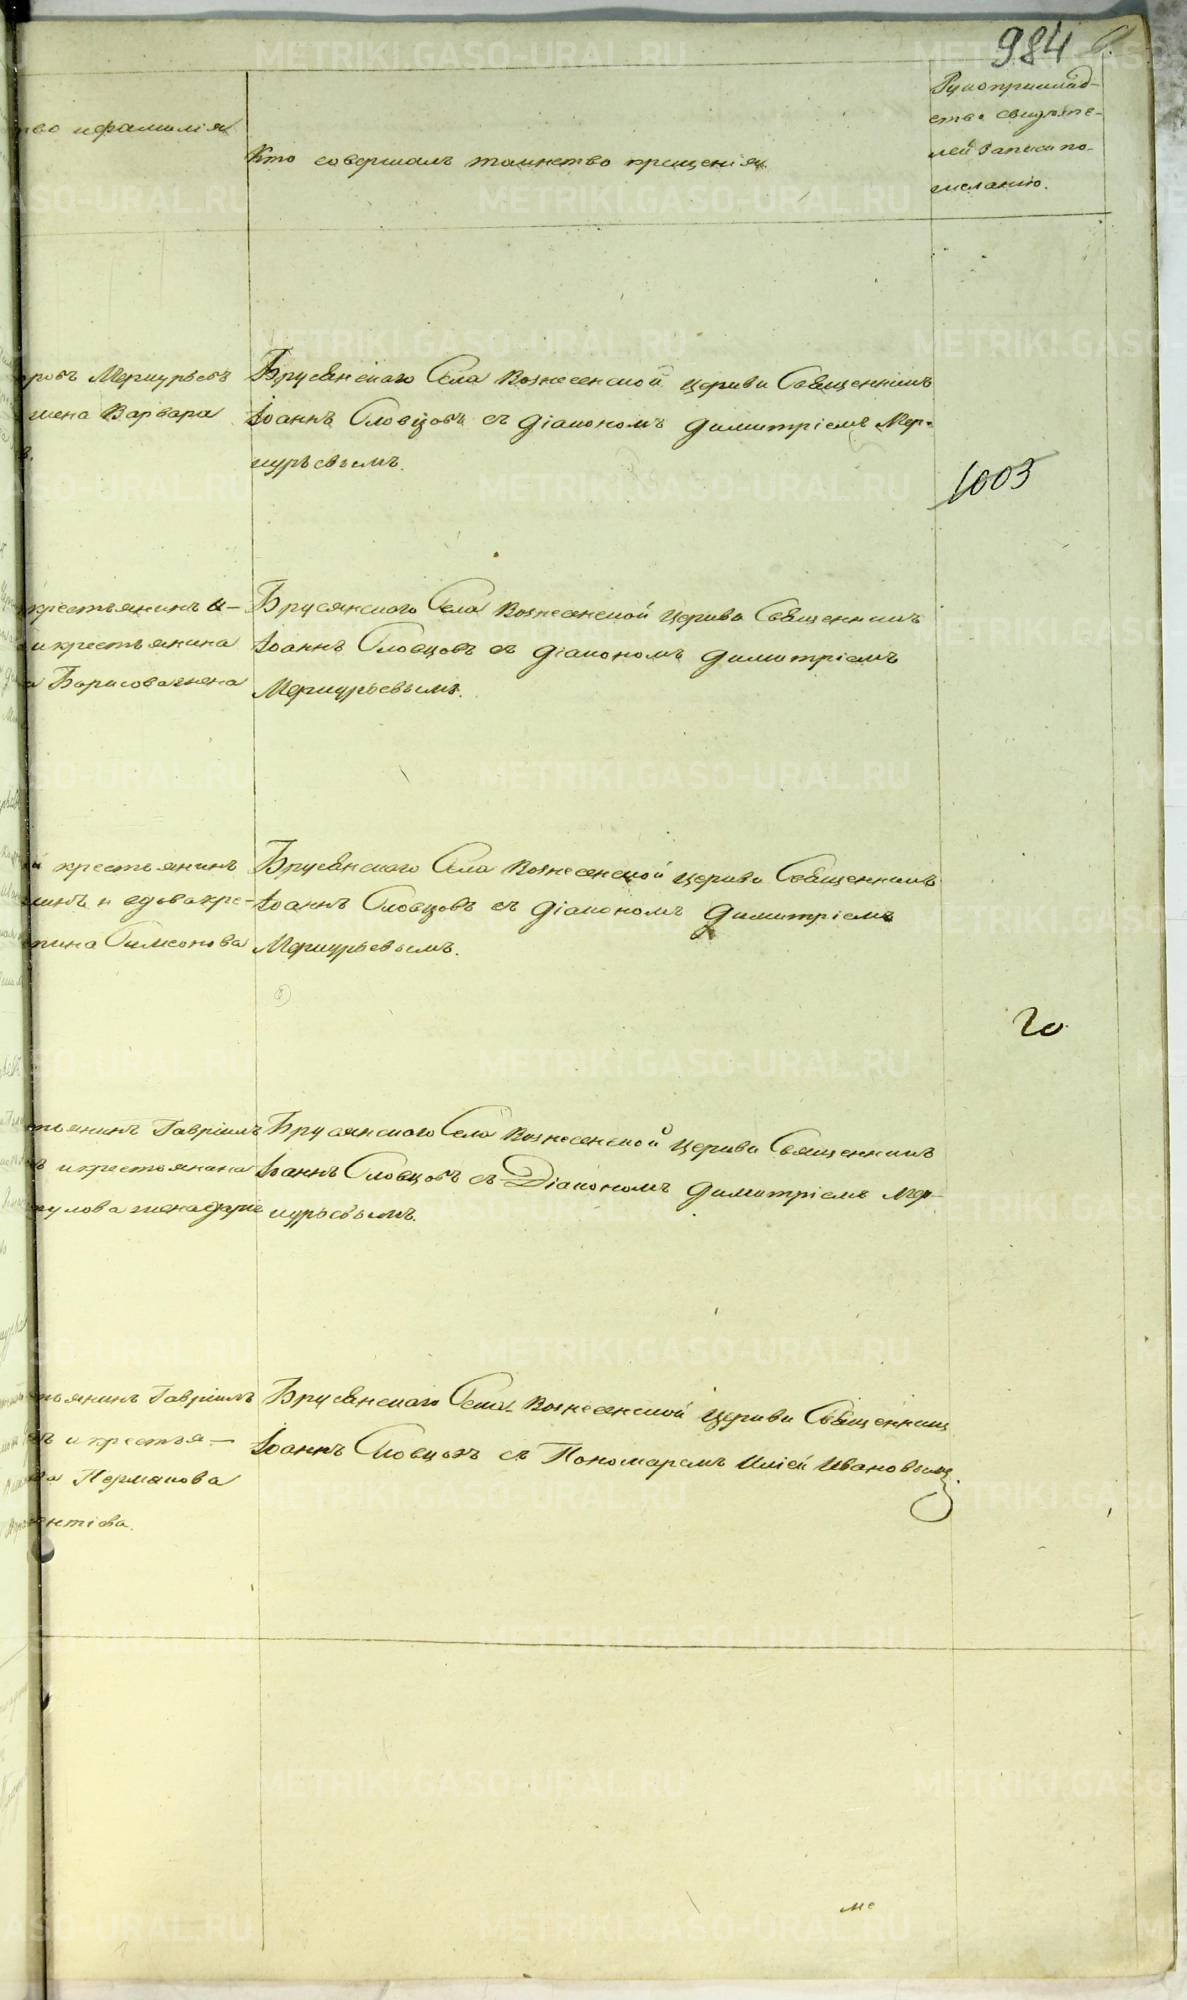 984
во и фамилія
Кто совершалъ таинство крещенія
Рукоприклад-
ство свидѣте-
лей записи по
желанію.
оровъ Меркурьевъ
жена Варвара
в.
Брусянскаго Села Вознесенской церкви Священникъ
Іоаннъ Словцовъ съ діакономъ Димитріемъ Мер-
курьевымъ.
1003
крестьянинъ и-
и крестьянина
а Борисова жена
Брусянскаго Села Вознесенской церкви Священникъ
Іоаннъ Словцовъ съ діакономъ Димитріемъ
Меркурьевымъ.
й крестьянинъ
и вдова кре-
пина Симеонова
Брусянскаго Села Вознесенской церкви Священникъ
Іоаннъ Словцовъ съ діакономъ Димитріемъ
Меркурьевымъ.
20
тьянинъ Гавріилъ
въ и крестьянина
кулова жена
Брусянскаго Села Вознесенской церкви Священникъ
Іоаннъ Словцовъ съ Діакономъ Димитріемъ Мер-
курьевымъ.
тьянинъ Гавріилъ
въ и крестья-
на Пермякова
ентіева.
Брусянскаго Села Вознесенской церкви Священникъ
Іоаннъ Словцовъ съ Пономаремъ Иліей Ивановымъ.
METRIKI.GASO-URAL.RU